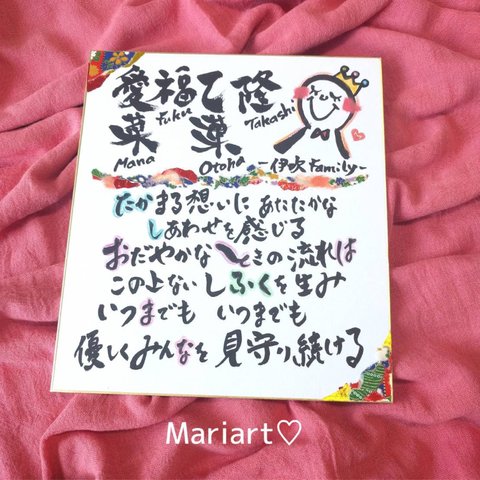 愛福乙隆
Fuku Takashi
菜 葉
Mana Otoha -伊吹 Family-
たかまる想いに あたたかな
しあわせを感じる
おだやかな ときの流れは
この上ない しふくを生み
いつまでも いつまでも
優しくみんなを 見守り続ける
Mariart♡